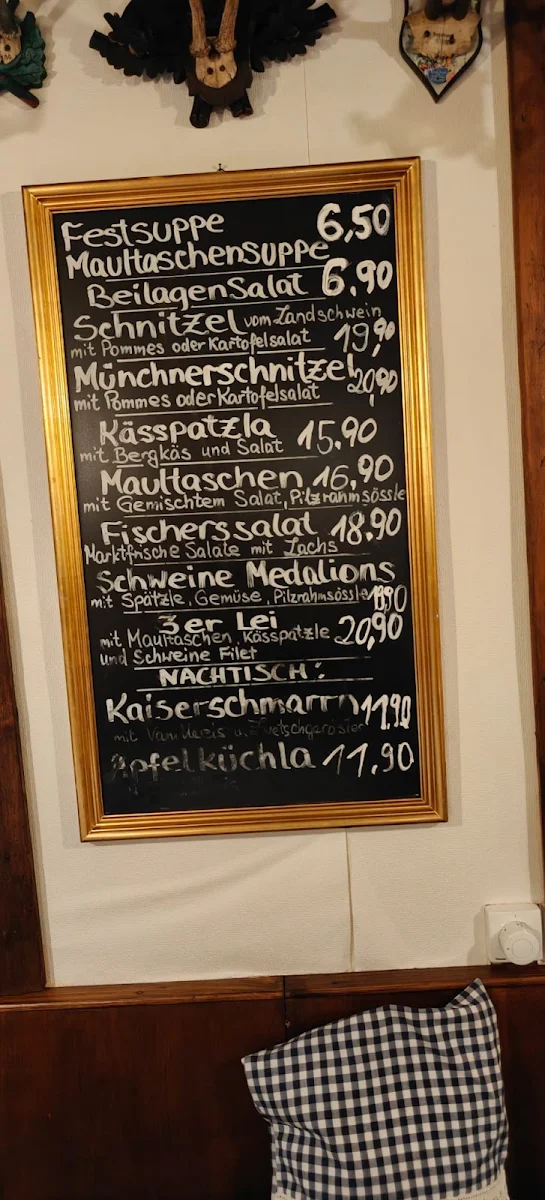 Festsuppe 6,50
Maultaschensuppe
Beilagensalat 6,90
Schnitzel vom Landschwein
mit Pommes oder Kartofelsalat 19,90
Münchnerschnitzel 20,90
mit Pommes oder Kartofelsalat
Kässpatzla 15,90
mit Bergkäs und Salat
Maultaschen 16,90
mit Gemischtem Salat, Pilzrahmsössle
Fischerssalat 18,90
Marktfrische Salate mit Lachs
Schweine Medalions
mit Spätzle, Gemüse, Pilzrahmsössle
3er Lei
mit Maultaschen, Kässpatzle 20,90
und Schweine Filet
NACHTISCH:
Kaiserschmarrn 11,90
mit Vanilleeis u. Zwetschgaröster
Apfelküchla 11,90